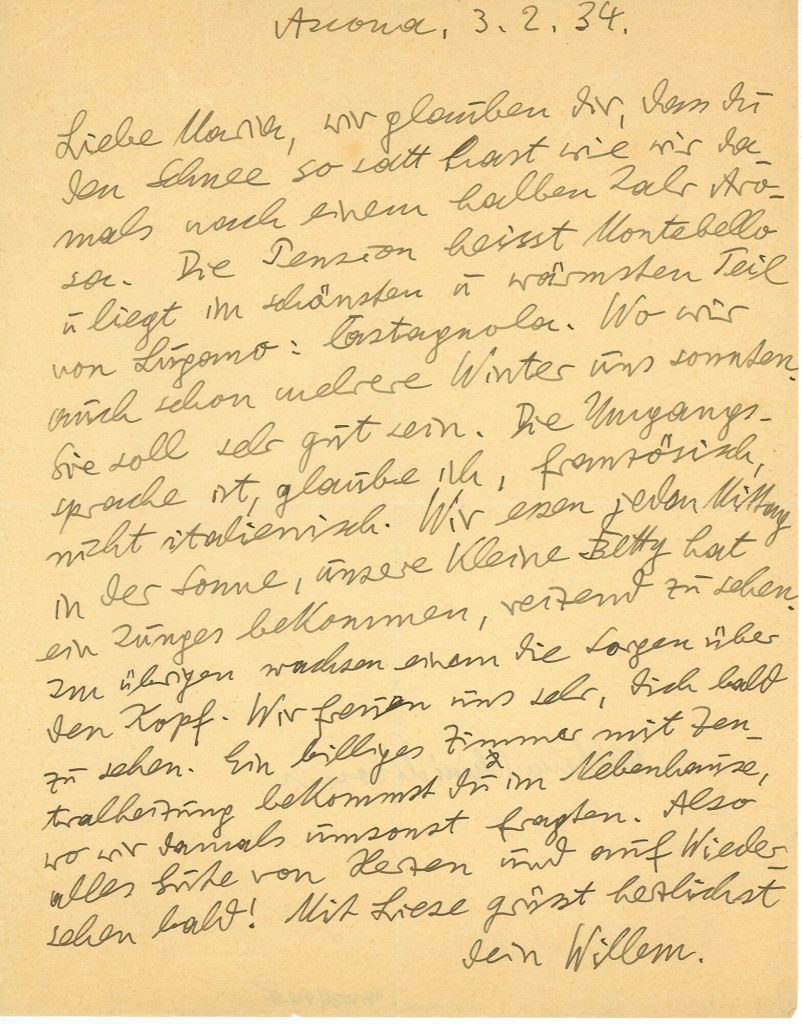 Ascona, 3. 2. 34.
Liebe Maria, wir glauben dir, dass du
den Schnee so satt hast wie wir da
mals nach einem halben Jahr Aro-
sa. Die Pension heisst Montebello
u liegt im schönsten u wärmsten Teil
von Lugano: Castagnola. Wo wir
auch schon mehrere Winter uns sonnten.
Sie soll sehr gut sein. Die Umgangs-
sprache ist, glaube ich, französisch,
nicht italienisch. Wir essen jeden Mittag
in der Sonne, unsere kleine Betty hat
ein Junges bekommen, reizend zu sehen.
Im übrigen wachsen einem die Sorgen über
den Kopf. Wir freuen uns sehr, dich bald
zu sehen. Ein billiges Zimmer mit Zen-
tralheizung bekommst du im Nebenhause,
wo wir damals umsonst fragten. Also
alles Gute von Herzen und auf Wieder
sehen bald! Mit Liese grüsst herzlichst
dein Willem.